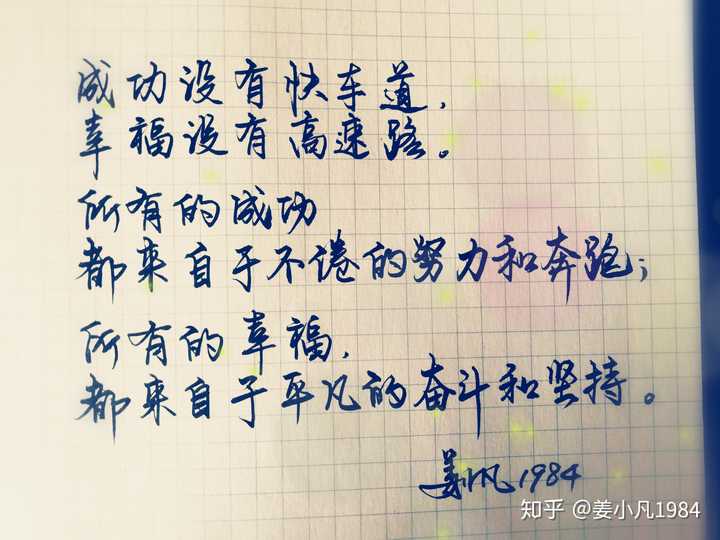 成功没有快车道，
幸福没有高速路。
所有的成功
都来自于不倦的努力和奔跑；
所有的幸福，
都来自于平凡的奋斗和坚持。
姜小凡1984
知乎 @姜小凡1984